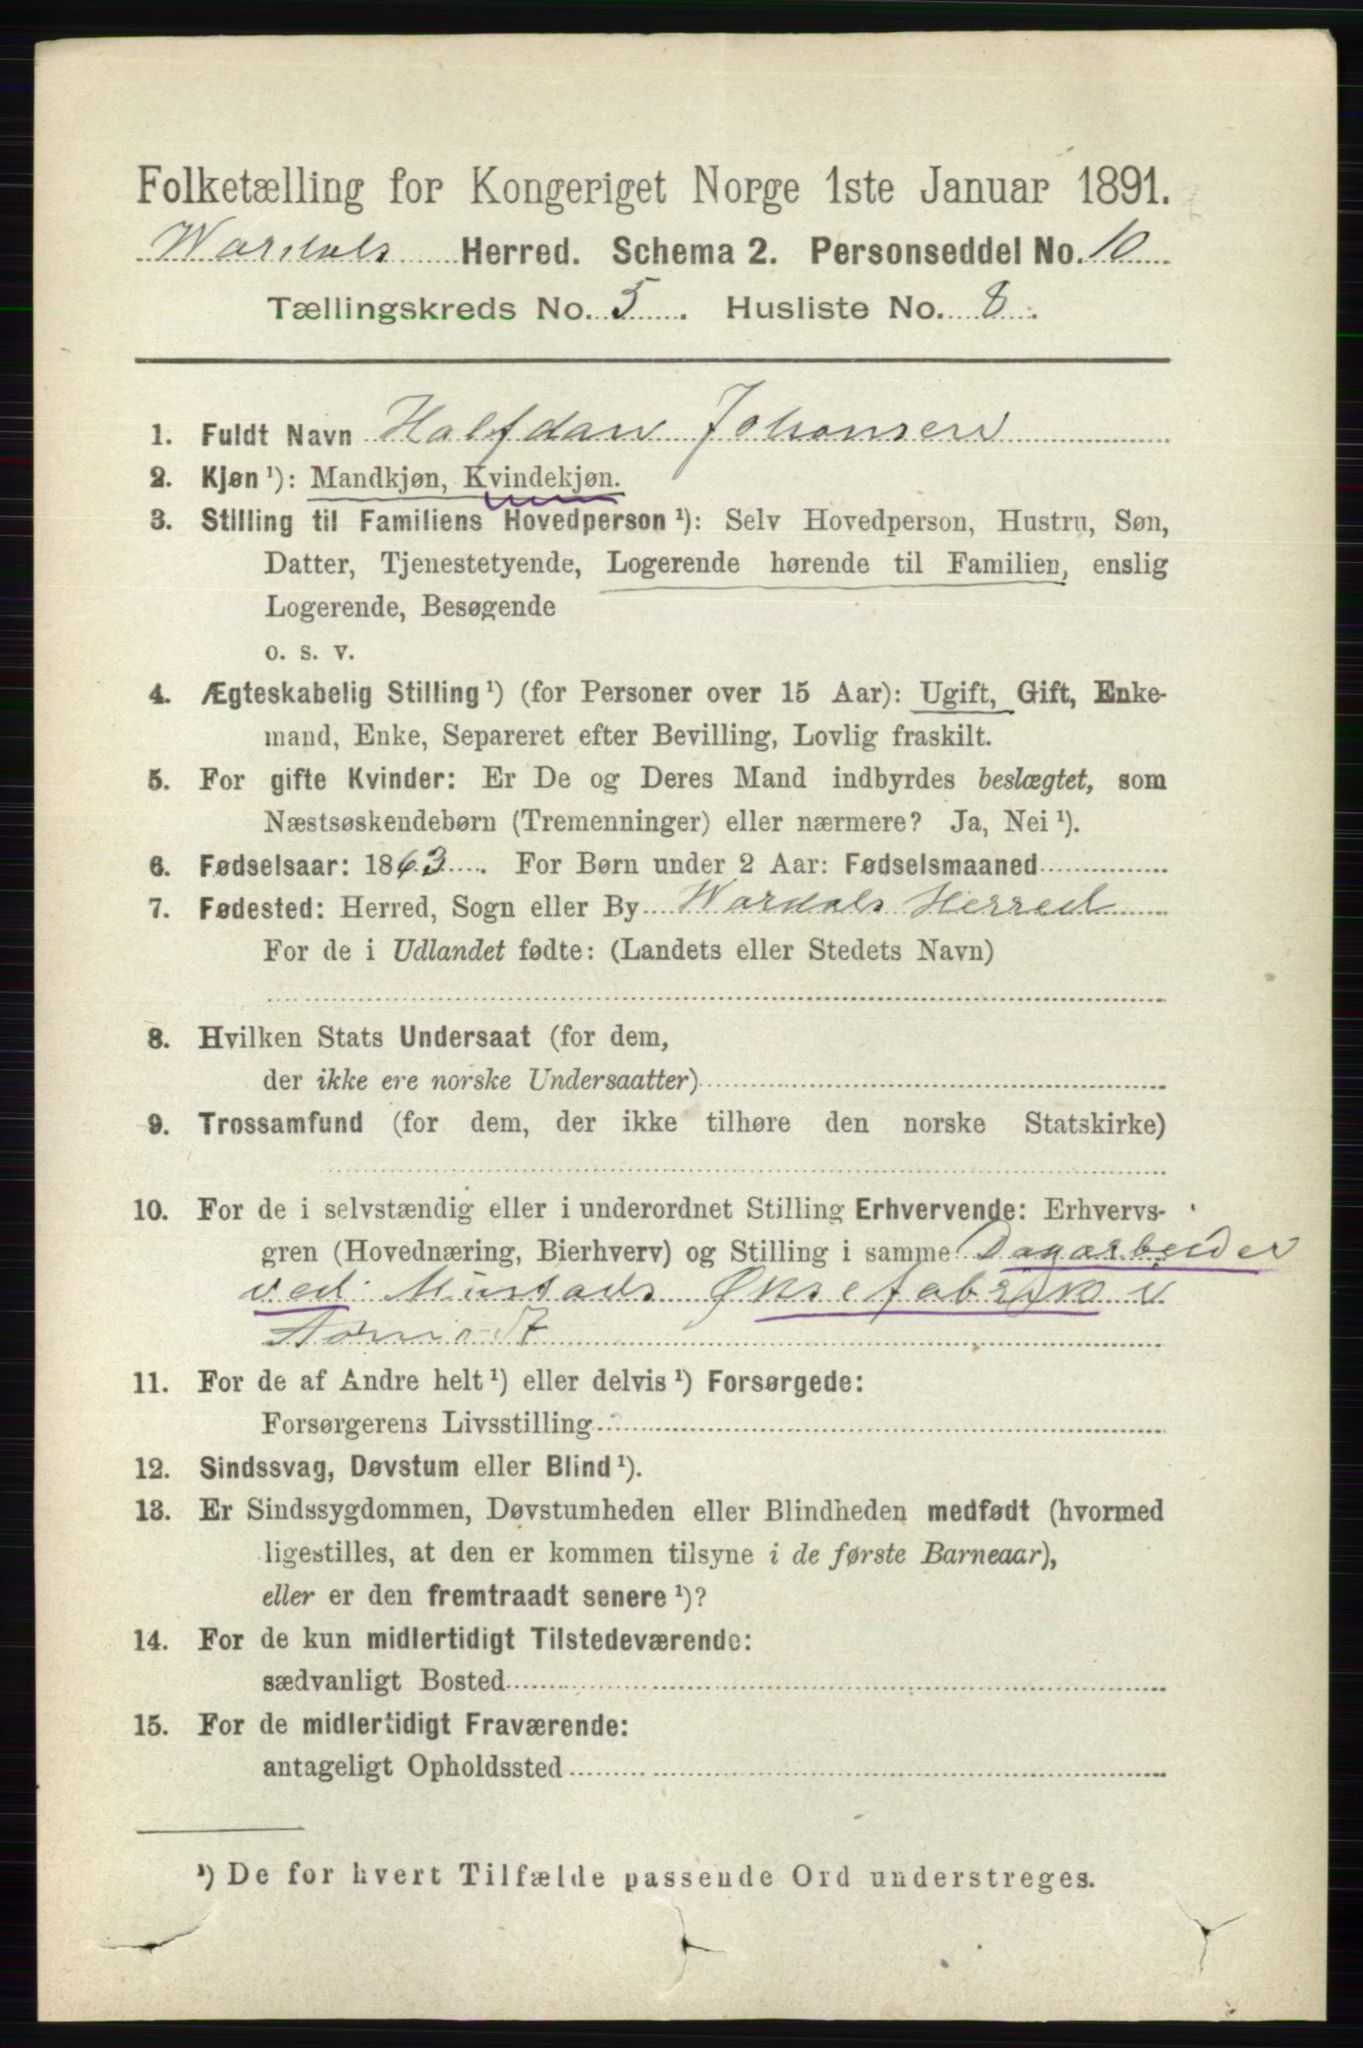 Folketælling for Kongeriget Norge 1ste Januar 1891.
Wardals Herred. Schema 2. Personseddel No. 10
Tællingskreds No. 5. Husliste No. 8.
1. Fuldt Navn Halfdan Johansen
2. Kjøn ¹): Mandkjøn, Kvindekjøn.
3. Stilling til Familiens Hovedperson ¹): Selv Hovedperson, Hustru, Søn,
Datter, Tjenestetyende, Logerende hørende til Familien, enslig
Logerende, Besøgende
o. s. v.
4. Ægteskabelig Stilling ¹) (for Personer over 15 Aar): Ugift, Gift, Enke-
mand, Enke, Separeret efter Bevilling, Lovlig fraskilt.
5. For gifte Kvinder: Er De og Deres Mand indbyrdes beslægtet, som
Næstsøskendebørn (Tremenninger) eller nærmere? Ja, Nei ¹).
6. Fødselsaar: 1863. For Børn under 2 Aar: Fødselsmaaned
7. Fødested: Herred, Sogn eller By Wardals Herred
For de i Udlandet fødte: (Landets eller Stedets Navn)
8. Hvilken Stats Undersaat (for dem,
der ikke ere norske Undersaatter)
9. Trossamfund (for dem, der ikke tilhøre den norske Statskirke)
10. For de i selvstændig eller i underordnet Stilling Erhvervende: Erhvervs-
gren (Hovednæring, Bierhverv) og Stilling i samme Dagarbeider
ved Mustads Øksefabrik i
11. For de af Andre helt ¹) eller delvis ¹) Forsørgede:
Forsørgerens Livsstilling
12. Sindssvag, Døvstum eller Blind ¹).
13. Er Sindssygdommen, Døvstumheden eller Blindheden medfødt (hvormed
ligestilles, at den er kommen tilsyne i de første Barneaar),
eller er den fremtraadt senere ¹)?
14. For de kun midlertidigt Tilstedeværende:
sædvanligt Bosted
15. For de midlertidigt Fraværende:
antageligt Opholdssted
¹) De for hvert Tilfælde passende Ord understreges.